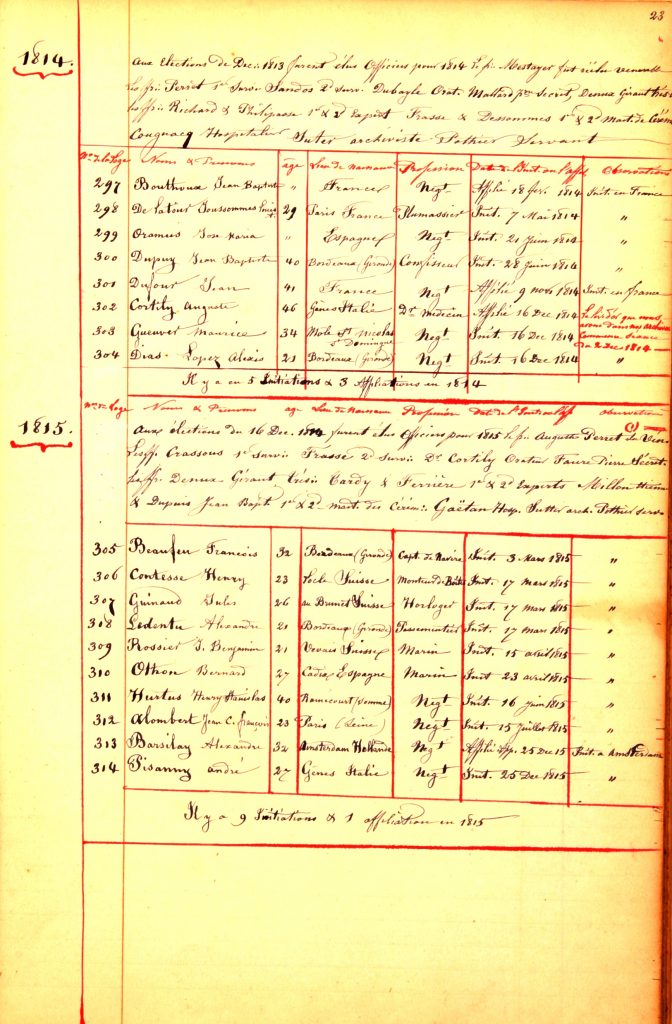 23
1814.
Aux Elections de Dec.: 1813 furent élus Officiers pour 1814 le f∴ Mestager fut réélu venerable
les ff∴ Perret 1er Surv∴ Sandos 2d Surv∴ Dubayle Orat. Mallard Secret, Denux Girant très
les ff∴ Richard & Philipasse 1er & 2d Expert Frasse & Dessommes 1er & 2d mait. de Cérém
Cougnacq Hospitalier Suter archiviste Pothier Servant
Nos de la Loge Noms & Prenoms âge Lieu de naissance Profession Date de l'Init. ou l'affil Observations
297 Bouthoux Jean Baptiste " France Negt Affilié 18 fev. 1814 Init. en France
298 De Latour Joussommes Louis 29 Paris France Plumassier Init. 7 Mai 1814 "
299 Oramus Jose Maria " Espagne Negt Init. 21 Juin 1814 "
300 Dupuy Jean Baptiste 40 Bordeaux (Gironde) Confiseur Init. 28 Juin 1814 "
301 Dufour Jean 41 France Negt Affilié 9 nov 1814 Init. en france
302 Cortily Auguste 46 Gênes Italie Dr médecin Affilié 16 Dec 1814
303 Gueuver Maurice 34 Mole St Nicolas St Domingue Negt Init. 16 Dec 1814 du 2 Dec 1814
304 Dias Lopez Alexis 21 Bordeaux (Gironde) Negt Init 16 Dec 1814 "
Il y a eu 5 Initiations & 3 Affiliations en 1814
1815.
Nos de Loge Noms & Prenoms age Lieu de naissance Profession Dat. de l'Init ou l'aff observation
Aux élections du 16 Dec. 1814, furent élus Officiers pour 1815 le f∴ Auguste Perret Ven
les ff∴ Crassous 1er Surv∴ Frasse 2d Surv∴ Dr Cortily Orateur Faure Pierre Secret.
les ff∴ Denux Girant, trés∴ Cardy & Ferrière 1er & 2d Experts Millon
& Dupuis Jean Bapt. 1er & 2d mait. des Cérém∴ Gaëtan Hosp. Sutter arch. Pothier serv
305 Beaufeu Francois 32 Bordeaux (Gironde) Capt. de Navire Init. 3 Mars 1815 "
306 Contesse Henry 23 Locle Suisse Monteur de Boites Init. 17 mars 1815 "
307 Guinand Jules 26 au Brunet Suisse Horloger Init. 17 mars 1815 "
308 Ledentu Alexandre 21 Bordeaux (Gironde) Passementier Init. 17 mars 1815 "
309 Rossier J. Benjamin 21 Vevais Suisse Marin Init. 15 avril 1815 "
310 Othon Bernard 27 Cadix Espagne Marin Init 23 avril 1815 "
311 Hurtus Henry Stanislas 40 Ramicourt (Somme) Negt Init. 16 Juin 1815 "
312 Alombert Jean C. françois 23 Paris (Seine) Negt Init. 15 Juillet 1815 "
313 Barsilay Alexandre 32 Amsterdam Hollande Negt Affilié Ap. 25 Dec 15 Init. a Amsterdam
314 Pisanny andré 27 Gênes Italie Negt Init. 25 Dec 1815 "
Il y a 9 Initiations & 1 affiliation en 1815